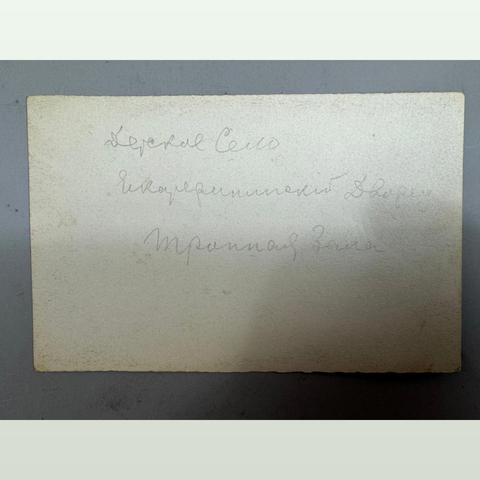 Детское Село
Екатерининскій Дворец
Тронная Зала